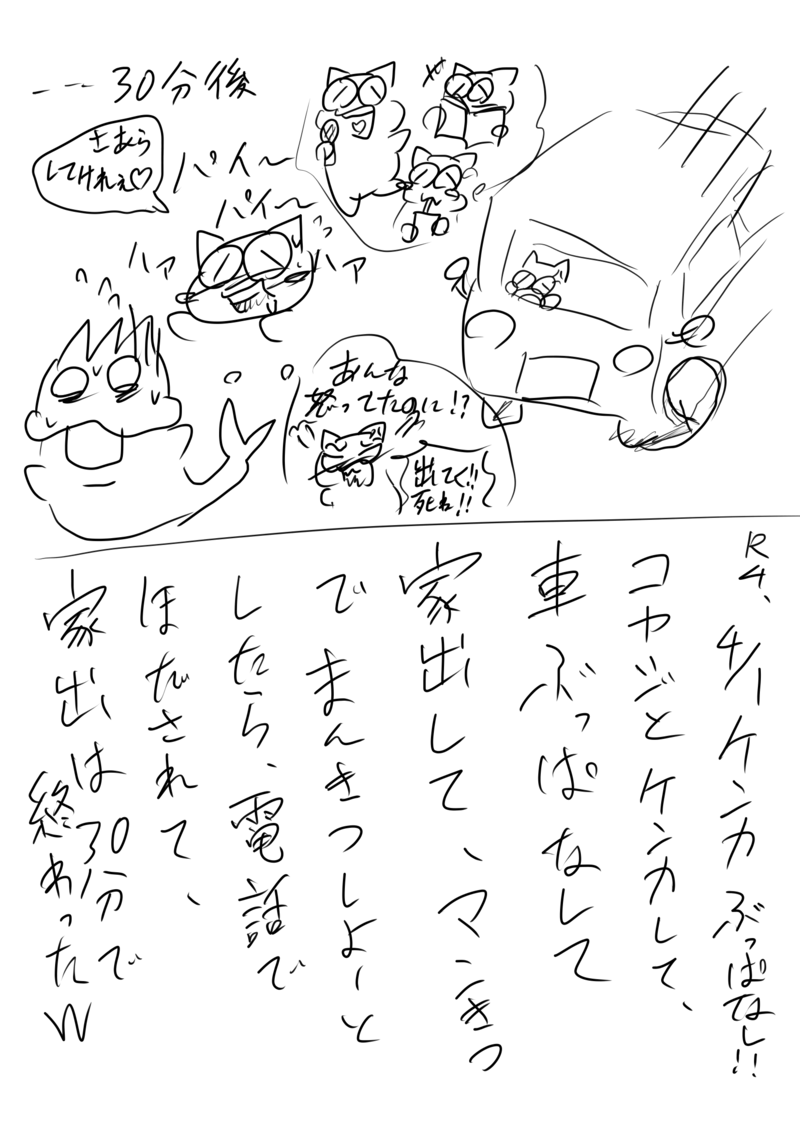 ---30分後
さあくら
してけれぇ♡
パイ〜
パイ〜
ハァ
ハァ
あんな
怒ってたのに!?
出てく!!
死ね!!
R4、4/1ケンカぶっぱなし!!
コヤジとケンカして、
車ぶっぱなして
家出して、マンきつ
でまんきつしよーと
したら、電話で
ほだされて、
家出は30分で
終わったW